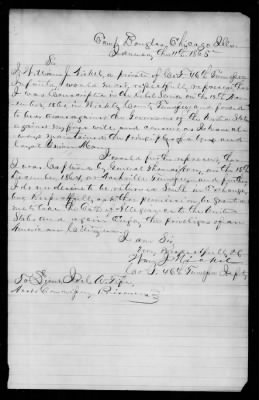 Camp Douglas, Chicago Ills.
January the 11th 1865
Sir
I William J. Nickel, a private of Co. I. 46th Tennessee
Infantry would most respectfully represent that
I was Conscripted in the Rebel Service on the 15th
1862, in Weakley County Tennessee and forced
to bear arms against the Government of the United States
against my free will and consent as I have al-
ways maintained the principles of a true and
loyal Union Man.
I would further represent, that
I was Captured by General Thomas forces, on the 15th
December 1864, at Nashville Tennessee and further
I do not desire to be returned South in Exchange,
but Respectfully ask other permission be granted
me to take the Oath of Allegiance to the United
States and again Enjoy the privileges of an
American Citizen
I am Sir,
Very Respectfully &c
Wm J Nickel
Co. I. 46th Tennessee Infty
To